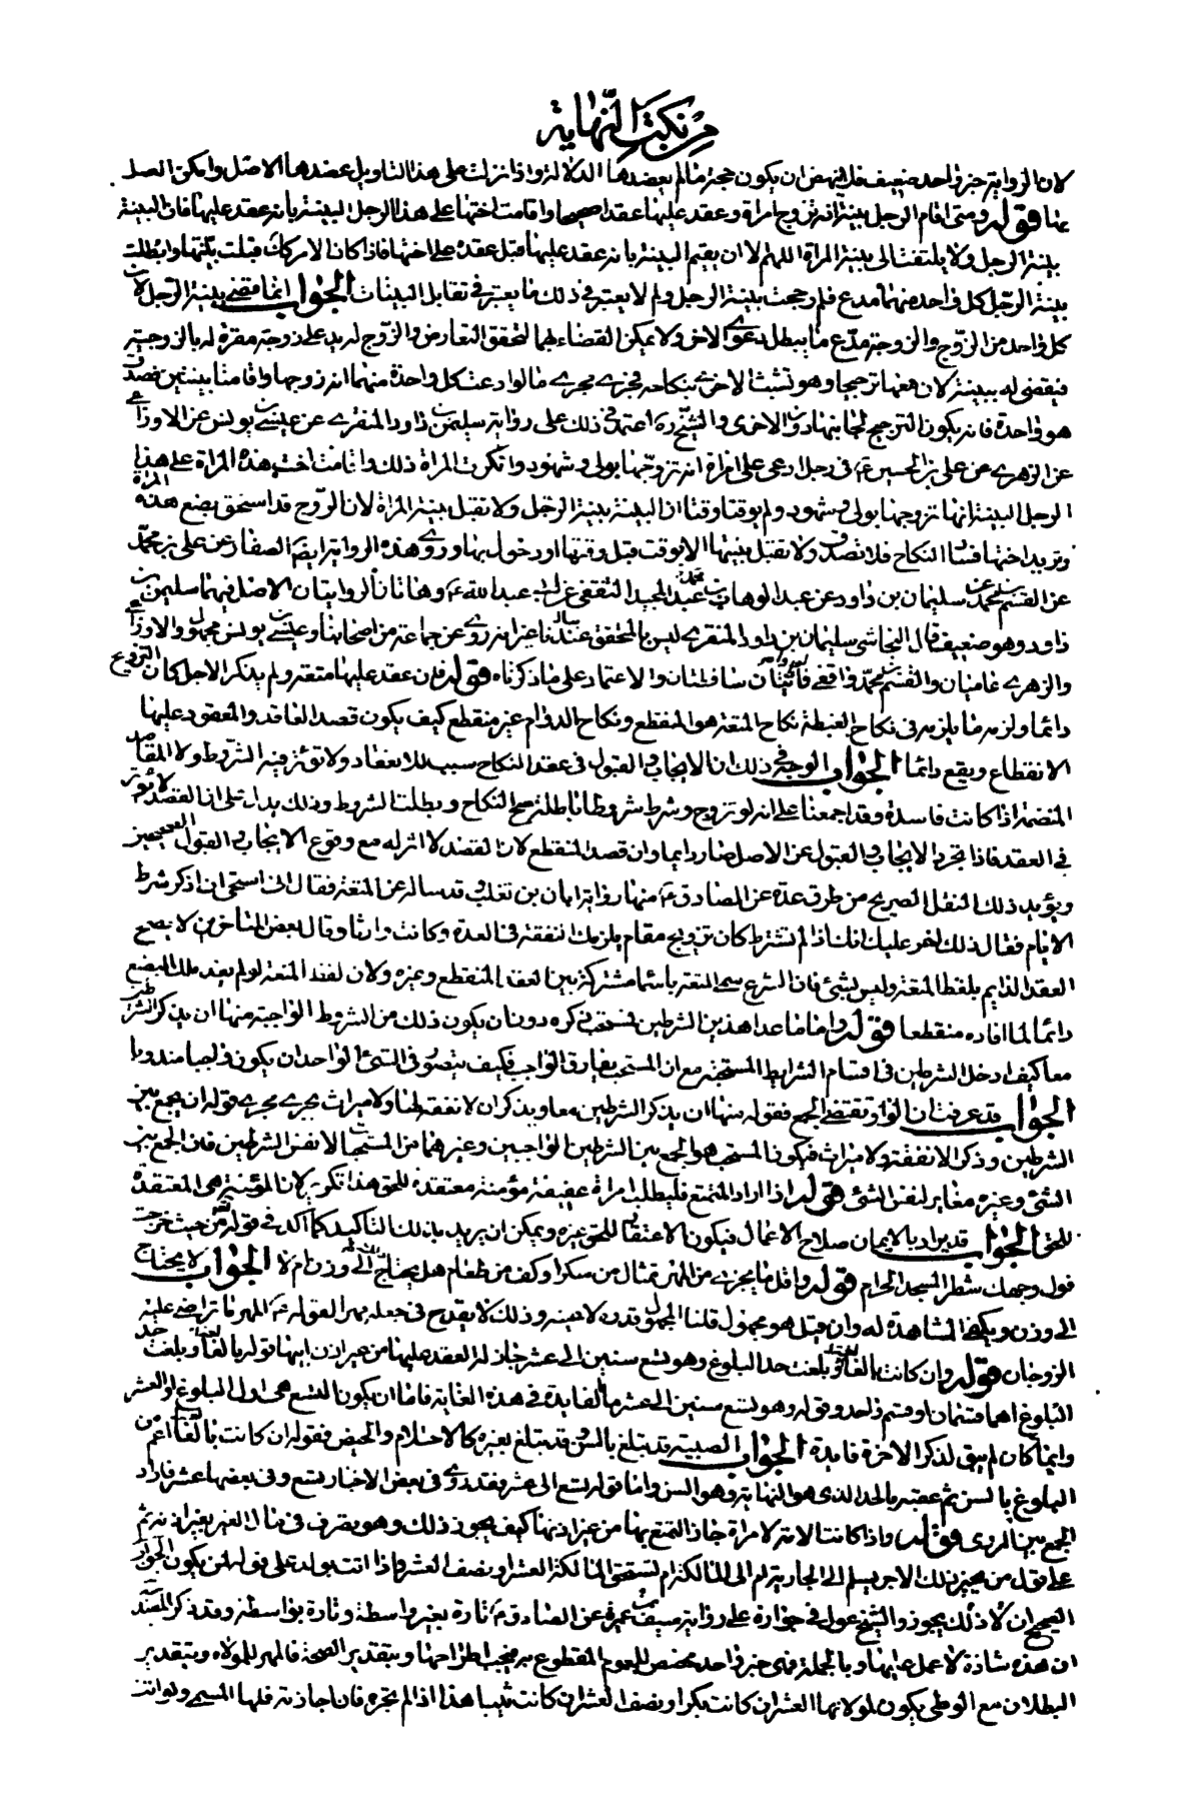 من نكت النهاية
لان الرواية خبر واحد ضعيف فلا ينهض ان يكون حجة ما لم يعضدها الدلالة واذا نزلت على هذا التاويل عضدها الاصل وامكن العمل
بها قوله ومتى اقام الرجل بينة انه تزوج امراة وعقد عليها عقدا صحيحا واقامت اختها على هذا الرجل البينة بانه عقد عليها فان البينة
بينة الرجل ولا يلتفت الى بينة المراة اللهم الا ان يقيم البينة بانه عقد عليها قبل عقده على اختها فاذا كان الامر كك قبلت بينتها وابطلت
بينة الرجل كل واحد منهما مدع فلم رجحت بينة الرجل ولم لا يعتبر في ذلك ما يعتبر في تقابل البينات الجواب انما قضى بينة الرجل لان
كل واحد من الزوج والزوجة مدع ما يبطل دعوى الاخر ولا يمكن القضاء لهما لتحقق التعارض والزوج له يد على زوجة مقرة له بالزوجية
فيقضى له ببينة لان معها ترجيحا وهو تشبث الاخرى بنكاحه فجرى مجرى ما لو ادعت كل واحدة منهما انه زوجها واقامتا بينتين فصدق
هو واحدة فانه يكون الترجيح لجانبها دون الاخرى والشيخ ره اعتمد في ذلك على رواية سليمن بن داود المنقري عن عيسى بن يونس عن الاوزاعي
عن الزهري عن علي بن الحسين ع في رجل ادعى على امراة انه تزوجها بولي وشهود وانكرت المراة ذلك واقامت اخت هذه المراة على هذا
الرجل البينة انه تزوجها بولي وشهود ولم يوقتا وقتا ان البينة بينة الرجل ولا تقبل بينة المراة لان الزوج قد استحق بضع هذه المراة
وتريد اختها فساد النكاح فلا تصدق ولا تقبل بينتها الا بوقت قبل وقتها او دخول بها وروى هذه الرواية ايضا الصفار عن علي بن محمد
عن القسم بن محمد عن سليمان بن داود عن عبد الوهاب بن عبد المجيد الثقفي عن ابي عبد الله ع وهاتان الروايتان الاصل فيهما سليمن بن
داود وهو ضعيف قال النجاشي سليمان بن داود المنقري ليس بالمتحقق عندنا غير انه روى عن جماعة من اصحابنا وعيسى بن يونس مجهول والاوزاعي
والزهري عاميان والقسم بن محمد واقفي فالروايتان ساقطتان والاعتماد على ما ذكرناه قوله فان عقد عليها متعة ولم يذكر الاجل كان التزويج
دائما ولزمه ما يلزمه في نكاح الغبطة نكاح المتعة هو المنقطع ونكاح الدوام غير منقطع كيف يكون قصد العاقد والمعقود عليها
الانقطاع ويقع دائما الجواب الوجه في ذلك ان الايجاب والقبول في عقد النكاح سبب للانعقاد ولا تؤثر فيه الشروط ولا المقاصد
المنضمة اذا كانت فاسدة وقد اجمعنا على انه لو تزوج وشرط شروطا باطلة صح النكاح وبطلت الشروط وذلك يدل على ان القصد لا يؤثر
في العقد فاذا تجرد الايجاب والقبول عن الاصل صار دايما وان قصد المنقطع لان القصد لا اثر له مع وقوع الايجاب والقبول الصحيحين
ويؤيد ذلك النقل الصريح من طرق عدة عن الصادق ع منها رواية ابان بن تغلب وقد ساله عن المتعة فقال اني استحي ان اذكر شرط
الايام فقال ذلك اضر عليك انك اذا لم تشترط كان تزويج مقام يلزمك النفقة في العدة وكانت وارثا وقال بعض المتاخرين لا يصح
العقد الدايم بلفظ المتعة وليس بشئ فان الشرع سمى المتعة باسما مشتركة بين العقد المنقطع وغيره ولان لفظ المتعة لو لم يفد ملك البضع
دائما لما افاده منقطعا قوله واما ما عدا هذين الشرطين فمستحب ذكره دون ان يكون ذلك من الشروط الواجبة منها ان يذكر الشرطين
معا كيف ادخل الشرطين في اقسام الشرايط المستحبة مع ان المستحب يفارق الواجب فكيف يتصور في الشئ الواحد ان يكون واجبا مندوبا
الجواب قد عرفت ان الواو تقتضي الجمع فقوله منها ان يذكر الشرطين معا ويذكر ان لا نفقة لها ولا ميراث يجري مجرى قوله ان يجمع بين
الشرطين وذكر الا نفقة ولا ميراث فيكون المستحب هو الجمع بين الشرطين الواجبين وغيرهما من المستحبات لا نفس الشرطين فان الجمع بين
الشئ وغيره مغاير لنفس الشئ قوله اذا اراد التمتع فليطلب امراة عفيفة مؤمنة معتقدة للحق هذا تكرير لان المؤمنة هي المعتقدة
للحق الجواب قد يراد بالايمان صلاح الاعمال فيكون الاعتقاد للحق غيره ويمكن ان يريد بذلك التاكيد كما اكد في قوله تعالى من حيث خرجت
فول وجهك شطر المسجد الحرام قوله واقل ما يجزي من المهر تمثال من سكر او كف من طعام هل يحتاج الى وزن ام لا الجواب لا يحتاج
الى وزن ويكفي المشاهدة له وان قيل هو مجهول قلنا المجهول قدره لا عينه وذلك لا يقدح في جعله مهرا لقوله ع المهر ما تراضى عليه
الزوجان قوله وان كانت بالغا وبلغت حد البلوغ وهو تسع سنين الى عشر جاز له العقد عليها من غير اذن ابيها قوله بالغا وبلغت حد
البلوغ اهما قسمان او قسم واحد وقوله وهو تسع سنين الى عشر ما الفايدة في هذه الغاية فاما ان يكون التسع هي اول البلوغ او العشر
وايهما كان لم يبق لذكر الاخرة فايدة الجواب الصبية قد تبلغ بالسن وقد تبلغ بغيره كالاحتلام والحيض فقوله ان كانت بالغا اعم من
البلوغ بالسن ثم عقبه بالحد الذي هو النهاية وهو السن واما قوله تسع الى عشر فقد روى في بعض الاخبار تسع وفي بعضها عشر فاراد
الجمع بين المروي قوله واذا كانت الامة لامراة جاز التمتع بها من غير اذنها كيف يجوز ذلك وهو تصرف في مال الغير بغير اذنه ثم
على قول من يجيز ذلك الاجر يسلم الى الجارية ام الى المالكة ام تستحق المالكة العشر او نصف العشر فاذا اتت بولد على قوله لمن يكون الجواب
الصحيح ان ذلك لا يجوز والشيخ عول في جوازه على رواية سيف بن عميرة عن الصادق ع تارة بغير واسطة وتارة بواسطة وقد ذكر المفيد
ان هذه شاذة لا عمل عليها وبالجملة فهي خبر واحد مخصص للعموم المقطوع به فيجب اطراحها وبتقدير الصحة فالمهر للمولاة وبتقدير
البطلان مع الوطي يكون لمولاتها العشر ان كانت بكرا ونصف العشر ان كانت ثيبا هذا اذا لم تجزه فان اجازته فلها المسمى ولو اتت